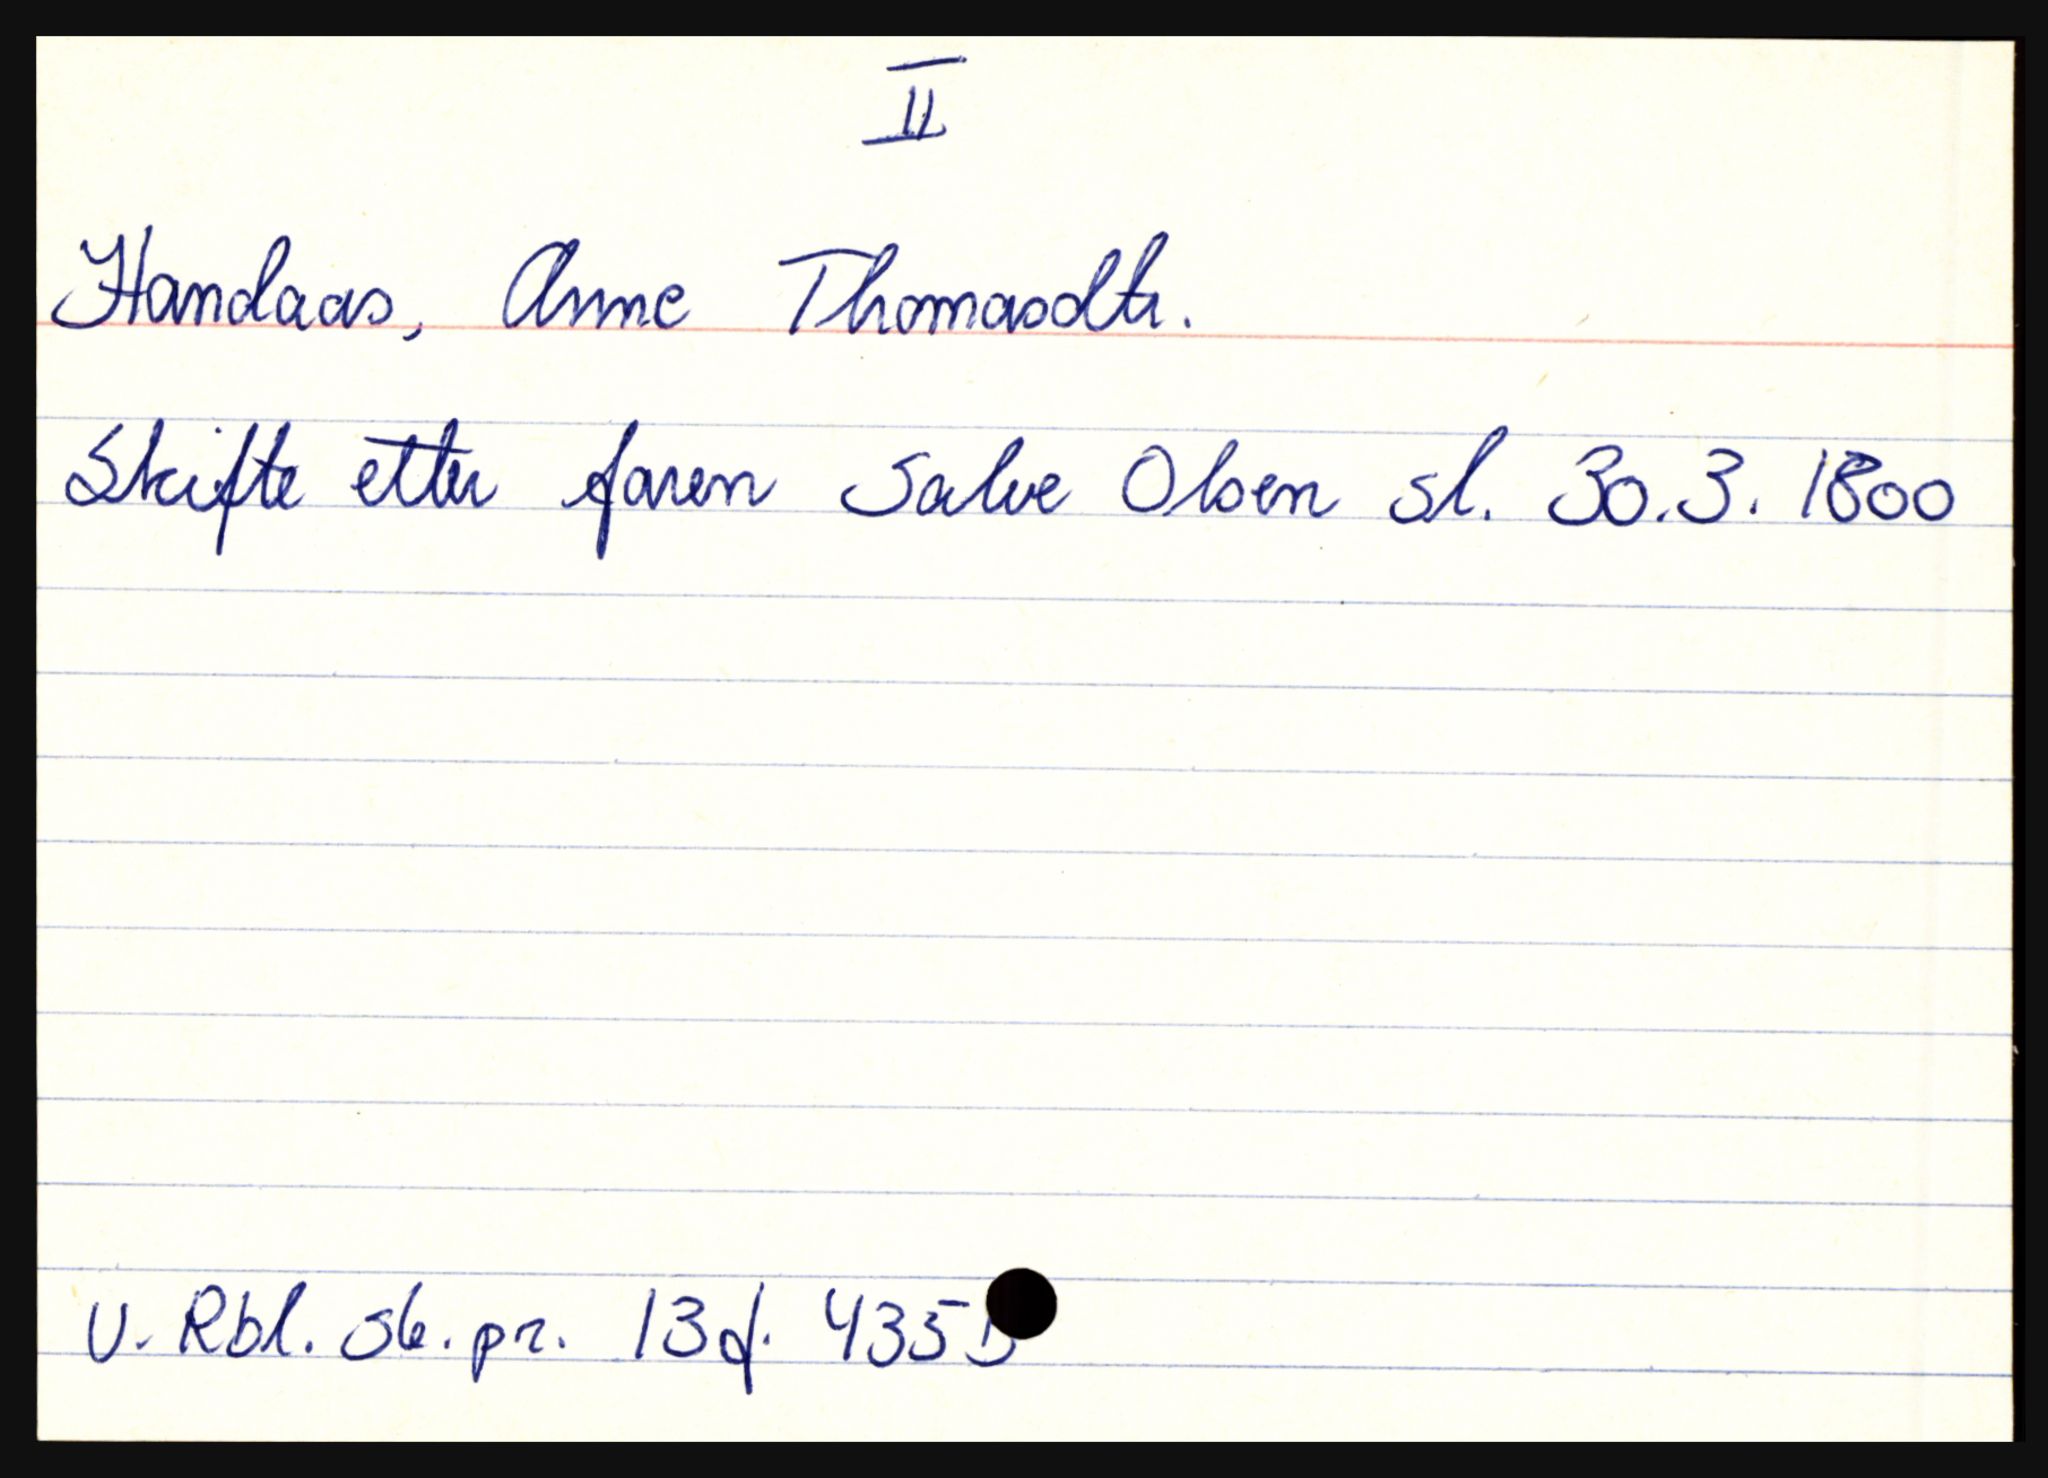 II
Handaas, Anne Thomasdtr.
Skifte etter faren Salve Olsen sl. 30.3. 1800
V. Rbl. sk. pr. 13 f. 435 b